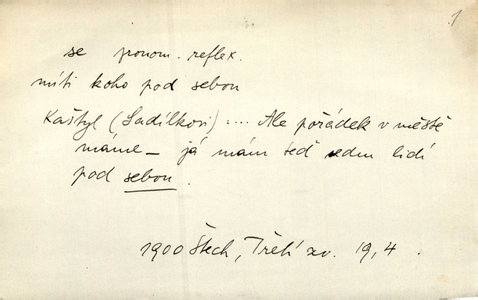 1
se pronom. reflex.
míti koho pod sebou
Kaštyl (Sadílkovi) .... Ale pořádek v městě
máme – já mám teď sedm lidí
pod sebou.
1900 Štech, Třetí zv. 19,4.